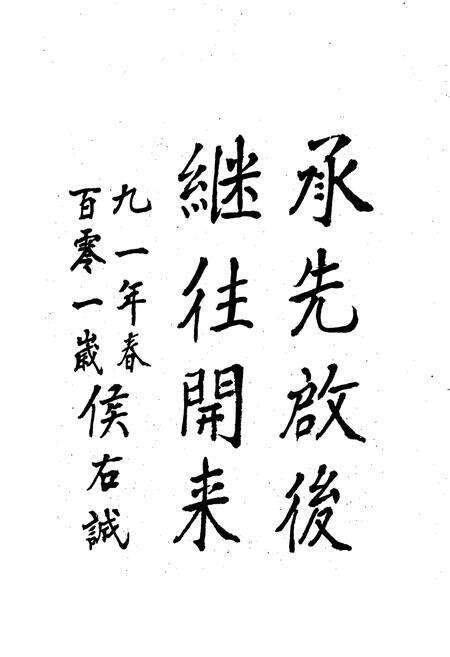 承先啟後
継往開来
九一年春
百零一歲
侯右誠